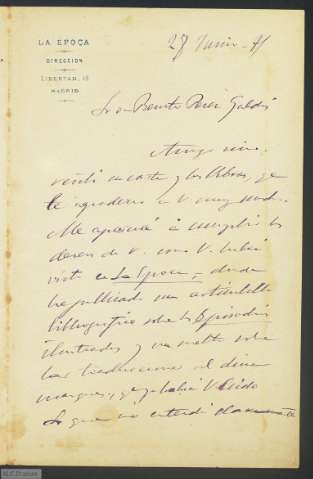 LA EPOCA
DIRECCION
LIBERTAD, 18
MADRID
27 Junio
Sr. Dn Benito Perez Galdós
Amigo mio:
recibí su carta y los libros, que
le agradezco á V. muy mucho.
Me apresuré á cumplir los
deseos de V. como V. habrá
visto en La Epoca, donde
he publicado un articulillo
bibliografico sobre los Episodios
ilustrados y un suelto sobre
las traducciones al dina
marques, que ya habrá V. leido
Lo que no entendí claramente